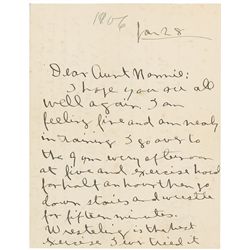 1906
Jan 28
Dear Aunt Nannie:
I hope you are all
well again. I am
feeling fine and am nearly
in training. I go over to
the gym every afternoon
at five and exercise hard
for half an hour then go
down stairs and wrestle
for fifteen minutes.
Wrestling is the best
exercise I've tried it